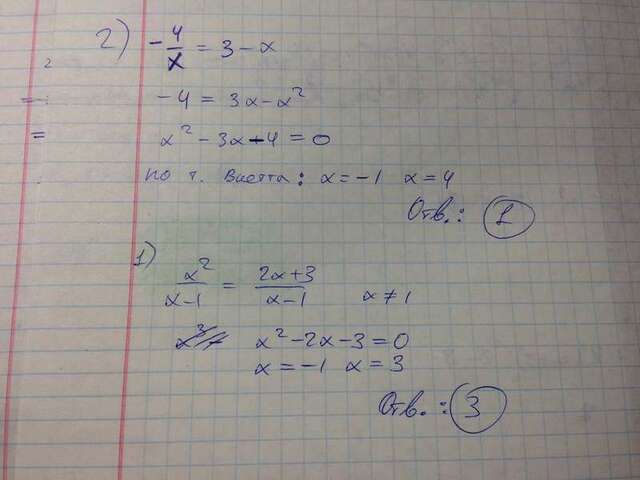 2) -4/x = 3 - x
-4 = 3x - x²
x² - 3x - 4 = 0
по т. Виетта: x = -1 x = 4
Отв.: 1
1) x²/x-1 = 2x+3/x-1 x ≠ 1
x² - 2x - 3 = 0
x = -1 x = 3
Отв.: 3